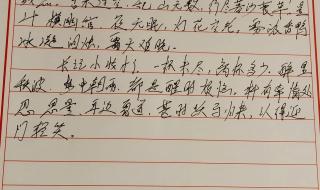 木连空，乱山无数，行尽暮沙衰草。星
斗横幽馆，夜无眠，灯花空老，雾浓香鸭，
冰凝泪烛，霜天难晓。
长记小妆才了，一杯未尽，离怀多少，醉里
秋波，梦中朝雨，都是醒时烦恼，料有牵情处，
忍思量，耳边曾道，甚时跃马归来，认得迎
门轻笑。